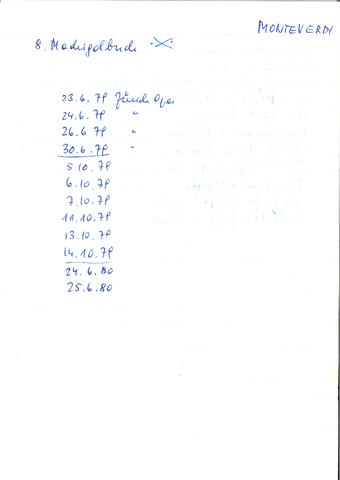 MONTEVERDI
8. Madrigalbuch
23.6.79 Zürich Oper
24.6.79 "
26.6.79 "
30.6.79 "
5.10.79
6.10.79
7.10.79
11.10.79
13.10.79
14.10.79
24.6.80
25.6.80